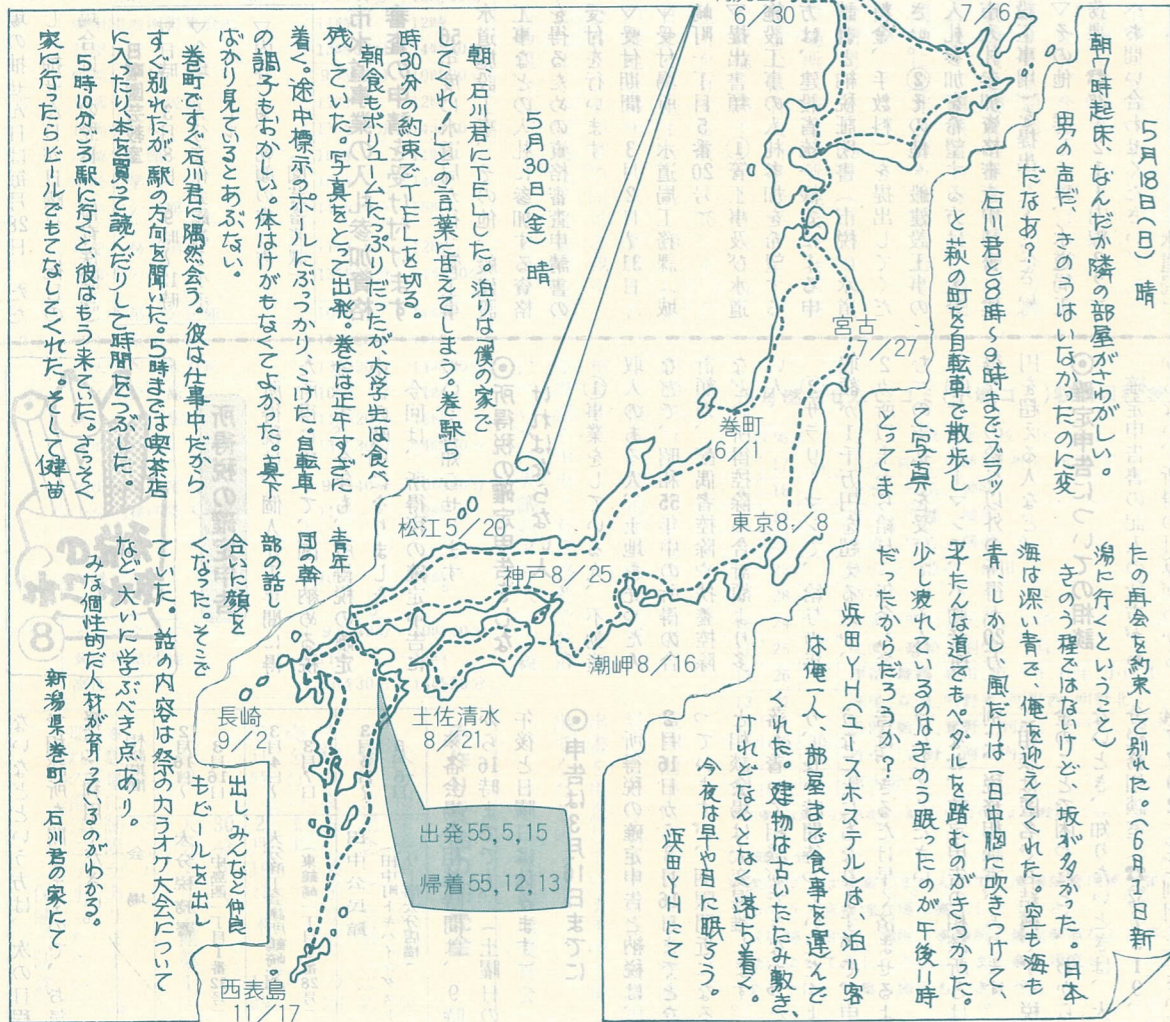 5月18日(日) 晴
朝7時起床、なんだか隣の部屋がさわがしい。
男の声だ。きのうはいなかったのに変
だなあ? 石川君と8時〜9時までブラッ
と萩の町を自転車で散歩し
て、写真
をとってま
たの再会を約束して別れた。(6月1日新
潟に行くということ)
きのう程ではないけど、坂が多かった。日本
海は深い青で、俺を迎えてくれた。空も海も
青、しかし風だけは一日中胸に吹きつけて、
平たんな道でもペダルを踏むのがきつかった。
少し疲れているのはきのう眠ったのが午後11時
だったからだろうか?
浜田YH(ユースホステル)は、泊り客
は俺一人、部屋まで食事を運んで
くれた。建物は古いたたみ敷き、
けれどなんとなく落ち着く。
今夜は早や目に眠ろう。
浜田YHにて
5月30日(金) 晴
朝、石川君にTELした、泊りは「僕の家で
してくれ!」との言葉に甘えてしまう。巻駅5
時30分の約束でTELを切る。
朝食もボリュームたっぷりだったが、大学生は食べ
残していた。写真をとって出発。巻には正午すぎに
着く。途中標示のポールにぶつかり、こけた。自転車
の調子もおかしい。体はけがもなくてよかった。真下
ばかり見ているとあぶない。
巻町ですぐ石川君に隅然会う。彼は仕事中だから
すぐ別れたが、駅の方向を聞いた。5時までは喫茶店
に入ったり、本を買って読んだりして時間をつぶした。
5時10分ごろ駅に行くと彼はもう来ていた。さっそく
家に行ったらビールでもてなしてくれた。そして、健苗
青年
団の幹
部の話し
合いに顔を
出し、みんなと仲良
くなった。そこで
もビールを出し
ていた。話の内容は祭のカラオケ大会について
など、大いに学ぶべき点あり。
みな個性的だ人材が育っているのがわかる。
新潟県巻町 石川君の家にて
6/30
7/6
宮古
7/27
巻町
6/1
東京8/8
松江5/20
神戸8/25
潮岬8/16
土佐清水
8/21
長崎
9/2
出発55,5,15
帰着55,12,13
西表島
11/17